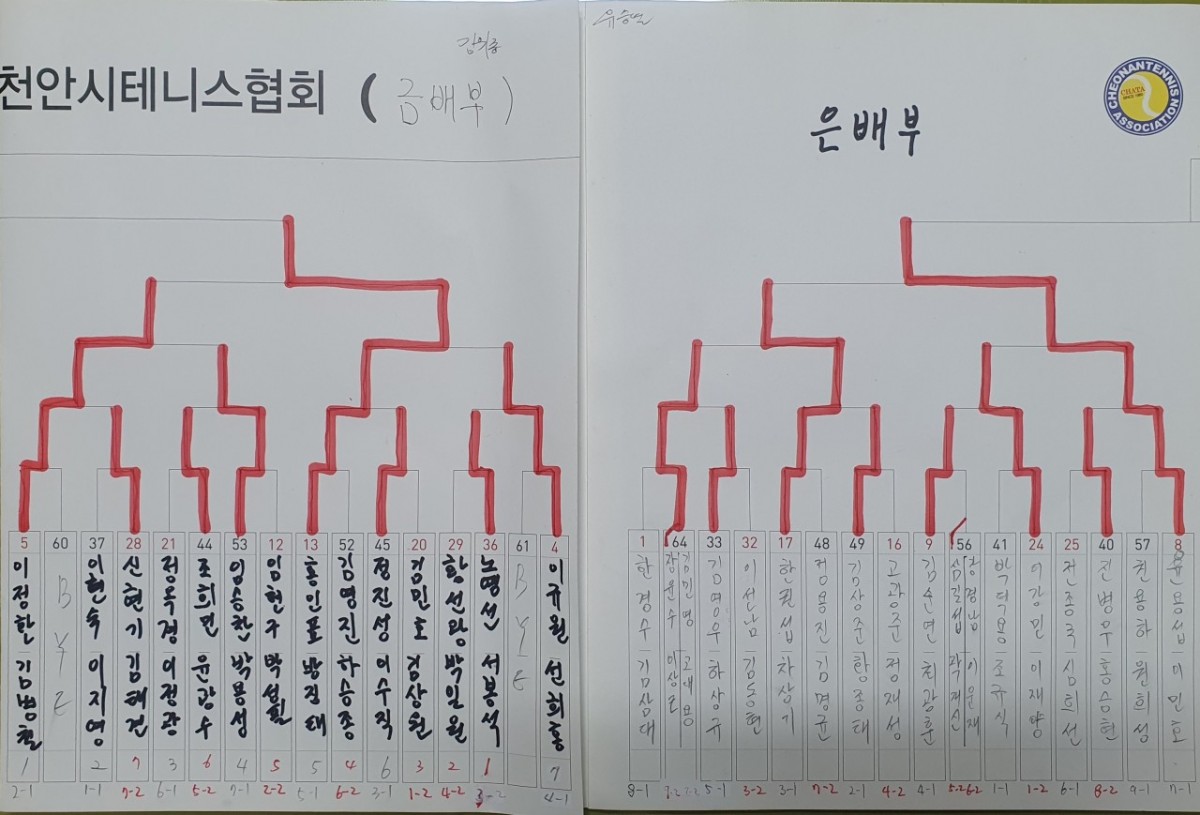 천안시테니스협회 (금배부)
5 60 37 28 21 44 53 12 13 52 45 20 29 36 61 4
이정한 김범철
BYE
이현숙 이지영
신현기 김태건
정옥경 이정광
조희민 윤광수
임승찬 박용성
임현구
홍인표 방진태
김영진 하승종
정진성 이수직
김민호 김상원
황선왕 박일원
노명선 서봉석
BYE
이규월 선희홍
1 2 7 3 6 4 5 5 4 6 3 2 1 7
2-1 1-1 7-2 6-1 5-2 7-1 2-2 5-1 6-2 3-1 1-2 4-2 3-2 4-1
은배부
CHEONANTENNIS
CHATA
ASSOCIATION
1 64 33 32 17 48 49 16 9 56 41 24 25 40 57 8
한경수 김삼대
김영우 하상규
이선남 김동현
한필섭 차상기
정용진 김명균
김상준 황종태
고광준 정재성
김수연 최광훈
박덕용 조규식
이강민 이재량
전종국 심희선
진병우 홍승현
천용하 원희성
윤용섭 이민호
8-1 5-1 3-2 3-1 7-2 2-1 4-2 4-1 5-2 6-2 1-1 1-2 6-1 8-2 9-1 7-1